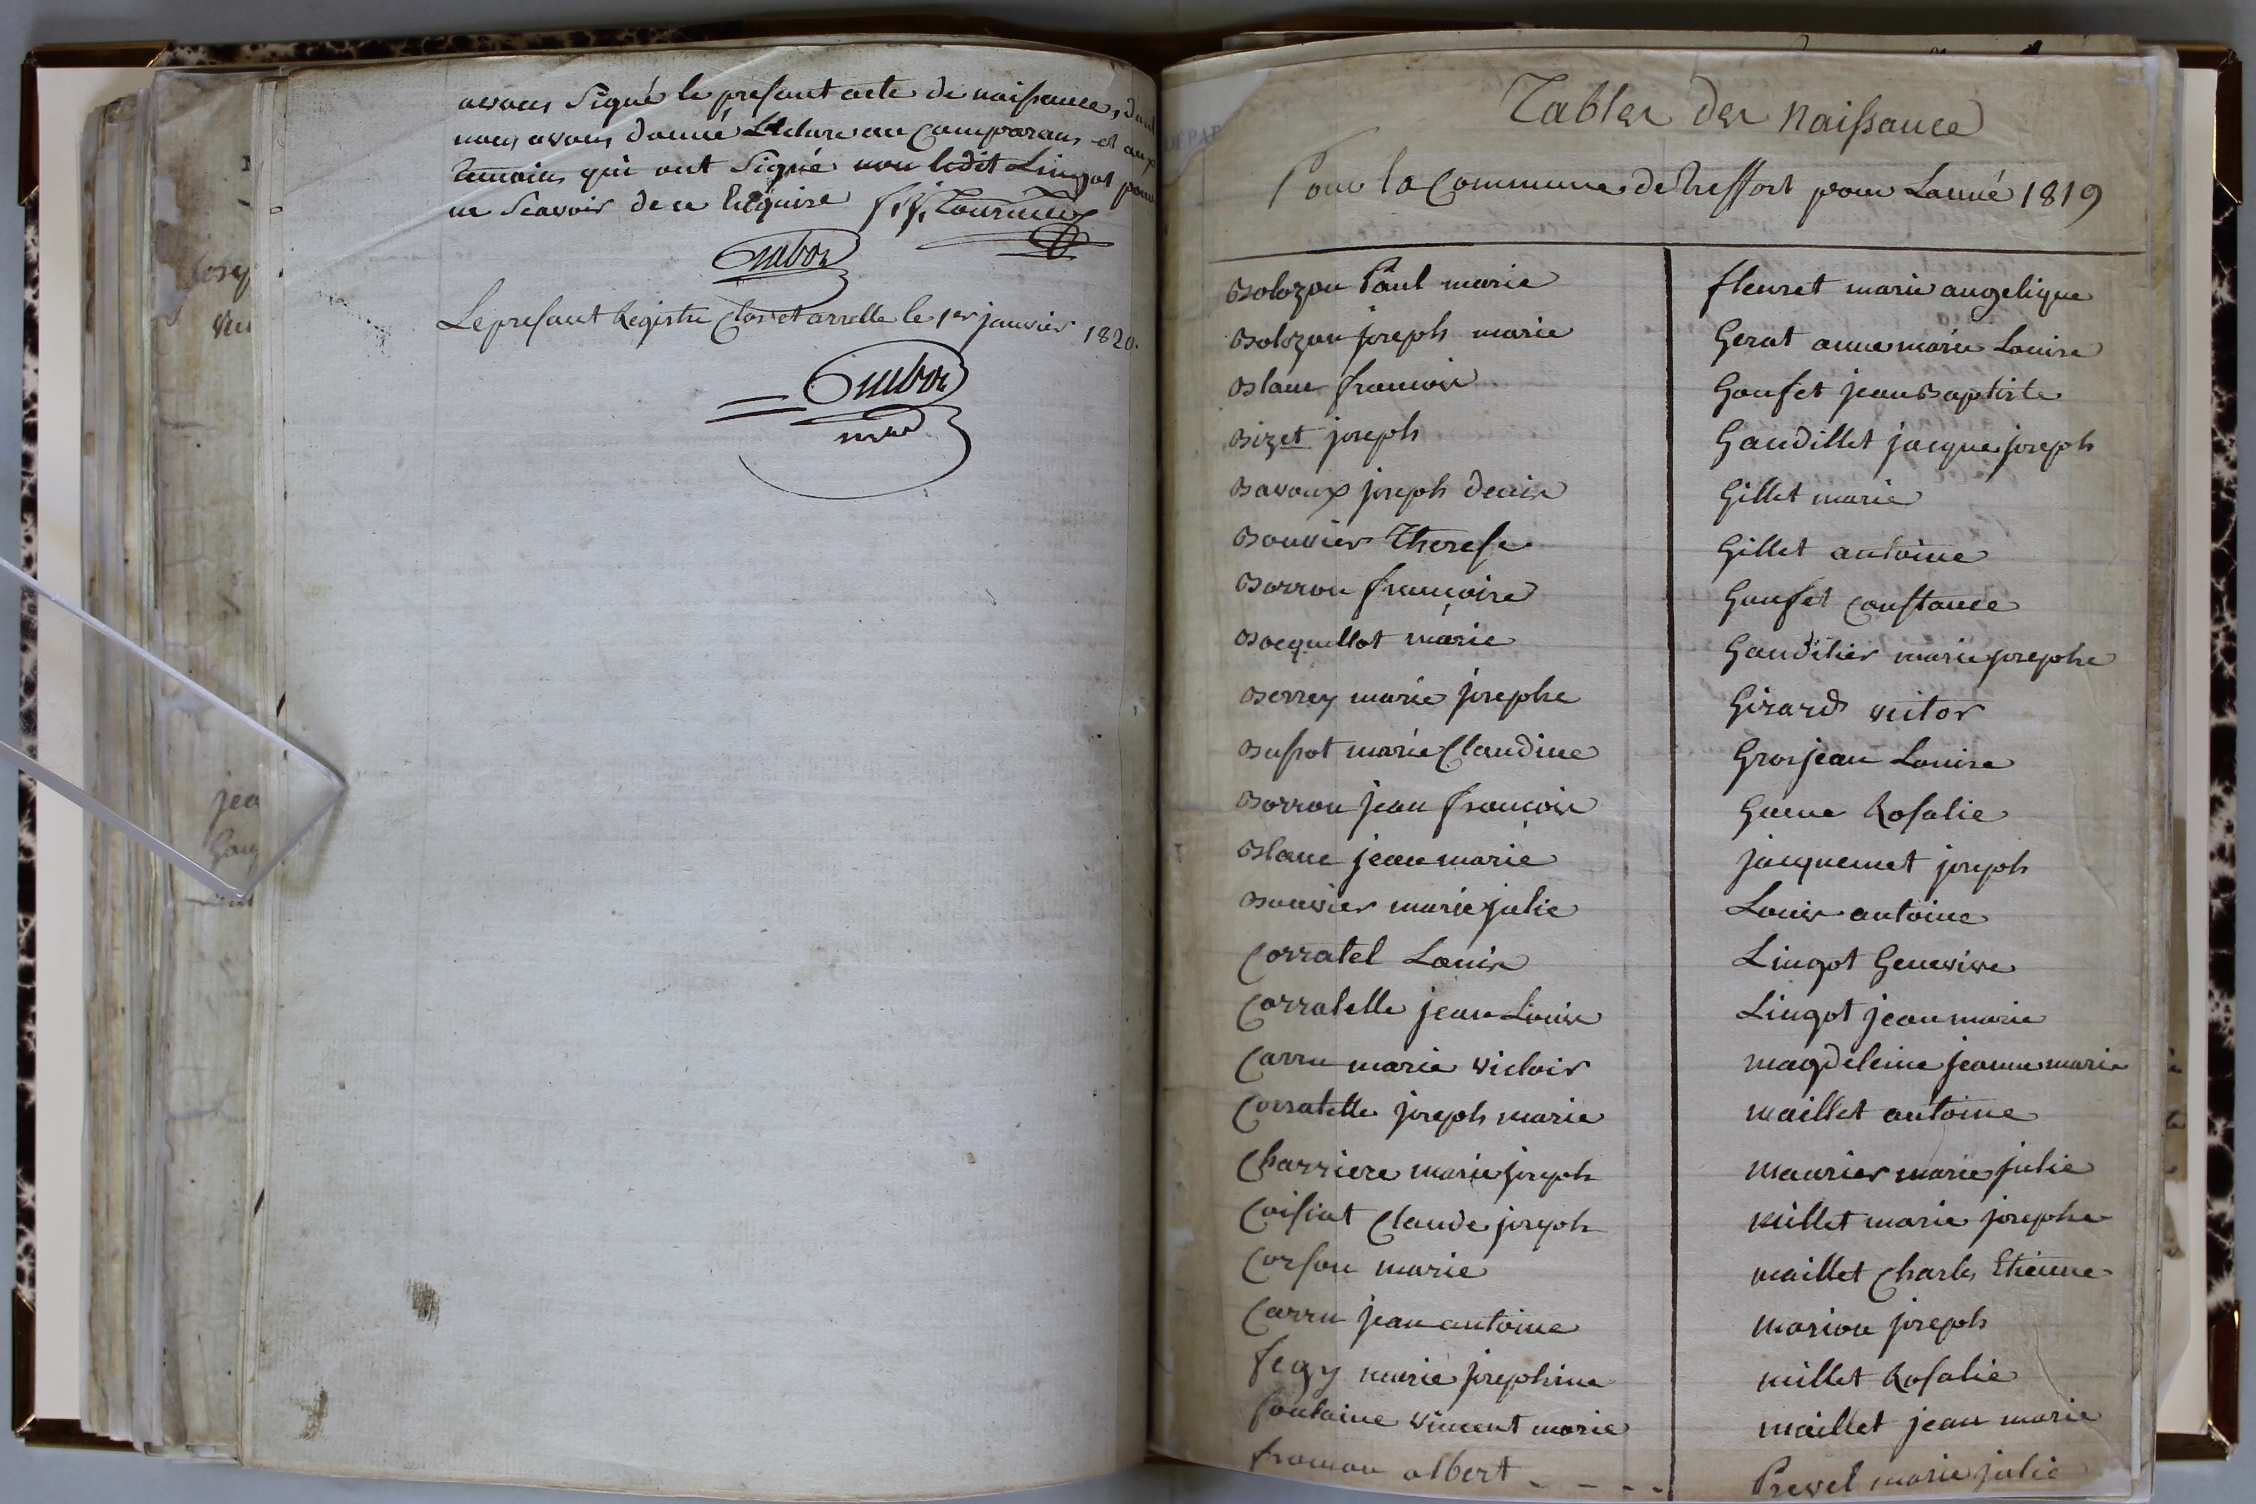 avons Signé le présent acte de naissance, dont
nous avons donné Lecture au Comparans et aux
temoins qui ont Signé non ledit Lingot pour
ne Scavoir de ce Enquise
Le present Registre Clos et arretté le 1er janvier 1820.
Tables des Naissance
Pour la Commune de treffort pour Lanné 1819
Bolozon Paul marie
Bolozon joseph marie
Blanc francois
Bizet joseph
Bavoux joseph denis
Bouvier Therese
Borron francoise
Bocquillot marie
Berrey marie josephe
Bussot marie Claudine
Borron jean francois
Blanc jean marie
Bouvier marie julie
Corratel Louis
Corratelle jean Louis
Carru marie victoir
Corratelle joseph marie
Charriere marie joseph
Coisiat Claude joseph
Corson marie
Carru jean antoine
Fegy marie josephine
fontaine vincent marie
froman albert
fleuret marie angelique
Gerat anne marie Louise
Gonset jean Baptiste
Gaudillet jacque joseph
Gillet marie
Gillet antoine
Gonset Constance
Gaudilier marie josephe
Girard victor
Grosjean Louise
Guene Rosalie
jacquemet joseph
Louis antoine
Lingot Genevive
Lingot jean marie
magdeleine jeanne marie
maillet antoine
maurier marie julie
millet marie josephe
maillet Charles Etienne
marion joseph
millet Rosalie
maillet jean marie
Prevel marie julie